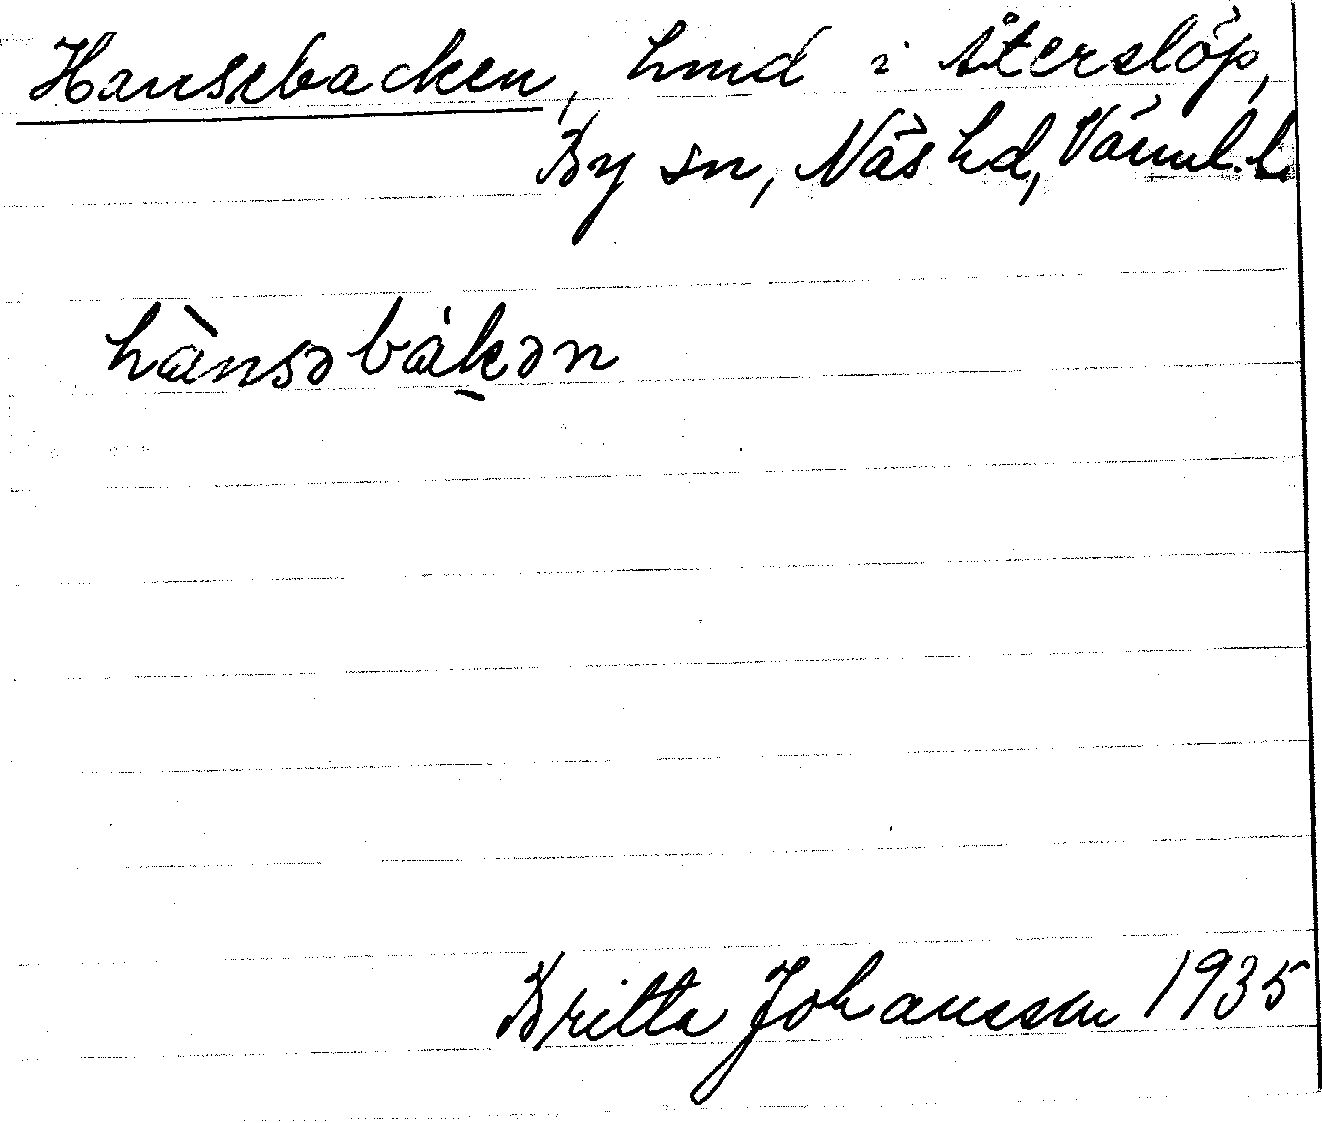 Hansebacken, hmd i Återslöp,
By sn, Näs hd, Värml. l.
hànsəbákən
Britta Johansson 1935